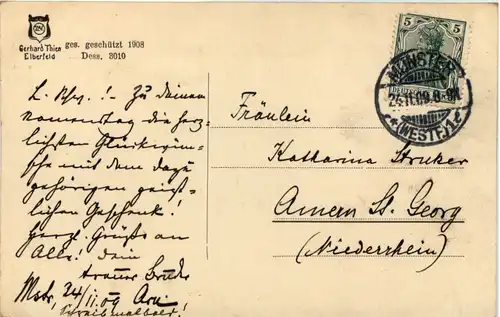 Gerhard Thien
Elberfeld
ges. geschützt 1908
Dess. 3010
5 5
DEUTSCHES REICH
MÜNSTER
24.11.09. 8-9V.
*(WESTF.)1c*
L. Schw.! - Zu deinem
Namenstag die herz-
lichsten Glückwün-
sche mit dem dazu
gehörigen geist-
lichen Geschenk!
Herzl. Grüße an
Alle! Dein
treuer Bruder
Mstr. 24/11.09
Schreib mal bald!
Fräulein
Katharina Struker
Amern St. Georg
(Niederrhein)